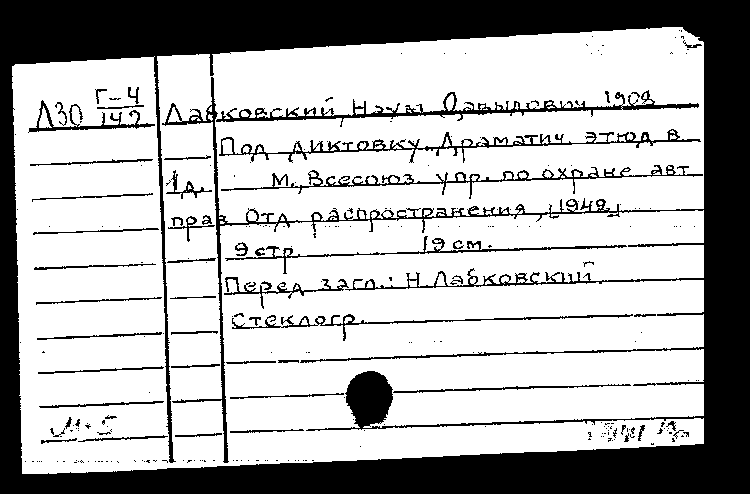 Л30 Г-4/142 Лабковский, Наум Давыдович, 1908
Под диктовку. Драматич. этюд в
1 д. М., Всесоюз. упр. по охране авт.
прав. Отд. распространения, [1949]
9 стр. 19 см.
Перед загл.: Н. Лабковский
Стеклогр.
М-5